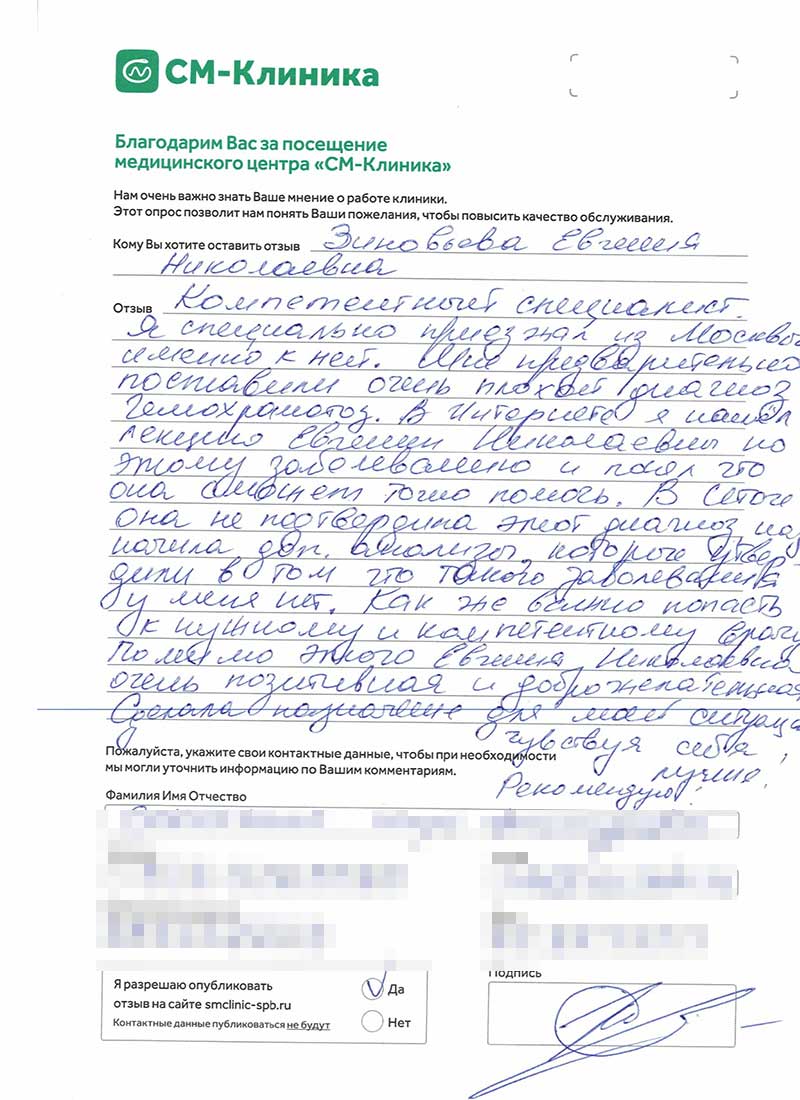 СМ-Клиника
Благодарим Вас за посещение
медицинского центра «СМ-Клиника»
Нам очень важно знать Ваше мнение о работе клиники.
Этот опрос позволит нам понять Ваши пожелания, чтобы повысить качество обслуживания.
Кому Вы хотите оставить отзыв Зиновьева Евгения
Николаевна
Отзыв Компетентный специалист.
Я специально приезжал из Москвы
именно к ней. Мне предварительно
поставили очень плохой диагноз
Гемохроматоз. В Интернете я нашел
лекцию Евгении Николаевны по
этому заболеванию и понял что
она сможет точно помочь. В итоге
она не подтвердила этот диагноз наз
начила доп. анализы, которые утвер
дили в том что такого заболевания
у меня нет. Как же важно попасть
к нужному и компетентному врачу
Помимо этого Евгения Николаевна
очень позитивная и доброжелательная
Сделала назначение для моей ситуации
чувствуя себя
Пожалуйста, укажите свои контактные данные, чтобы при необходимости
мы могли уточнить информацию по Вашим комментариям.
лучше.
Рекомендую!
Фамилия Имя Отчество
Я разрешаю опубликовать
отзыв на сайте smclinic-spb.ru
Контактные данные публиковаться не будут
Да
Нет
Подпись